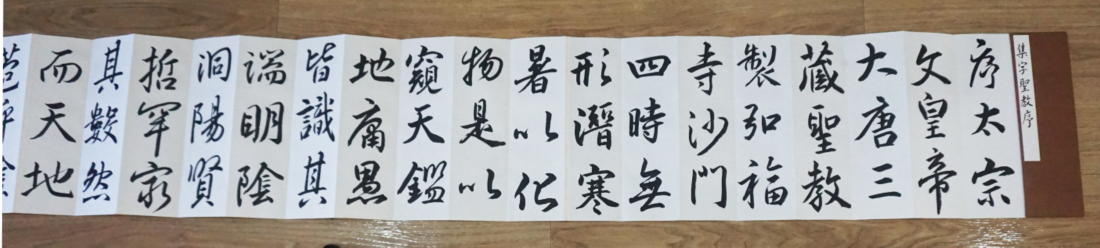 集字聖教序
序太宗
文皇帝
大唐三
藏聖教
製弘福
寺沙門
四時無
形潛寒
暑以化
物是以
窺天鑑
地庸愚
皆識其
端明陰
洞陽賢
哲罕窮
其數然
而天地
苞乎陰